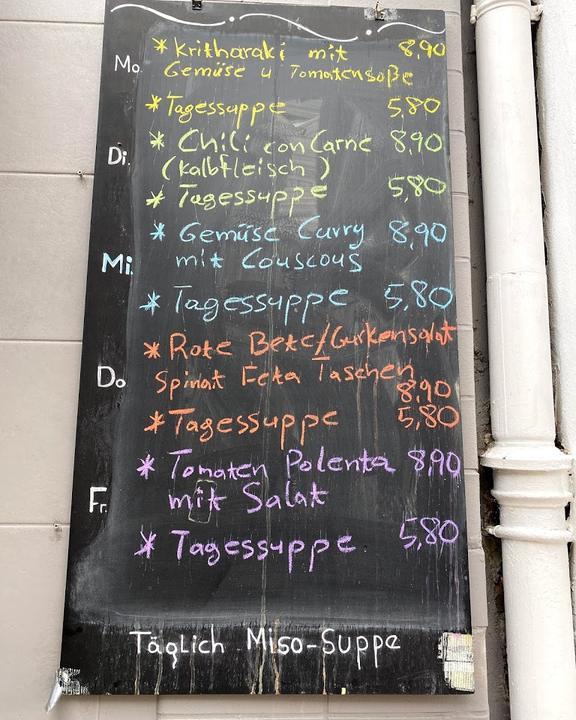 Mo. * Kritharaki mit 8,90
Gemüse u Tomatensoße
* Tagessuppe 5,80
Di. * Chili con Carne 8,90
(Kalbfleisch)
* Tagessuppe 5,80
* Gemüse Curry 8,90
Mi. mit Couscous
* Tagessuppe 5,80
* Rote Bete/Gurkensalat
Do Spinat Feta Taschen
8,90
* Tagessuppe 5,80
* Tomaten Polenta 8,90
Fr. mit Salat
* Tagessuppe 5,80
Täglich Miso-Suppe